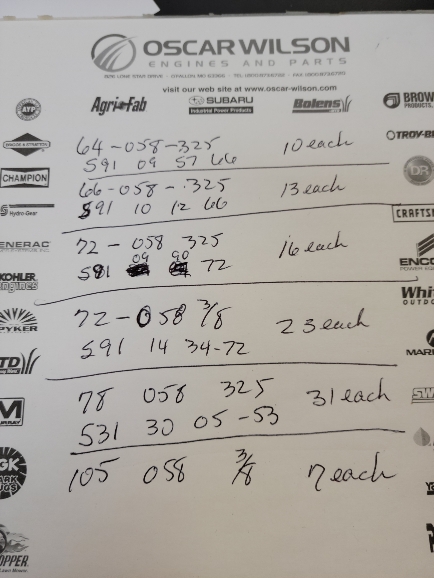 OSCAR WILSON
ENGINES AND PARTS
visit our web site at www.oscar-wilson.com
AYP
Agri-Fab
SUBARU
Industrial Power Products
Bolens
BROW
PRODUCTS,
BRIGGS & STRATTON
64-058-325 10 each
591 09 57 66
TROY-B
CHAMPION
66-058-.325 13 each
591 10 12 66
DR
Hydro-Gear
CRAFTSM
GENERAC
72 - 058 325 16 each
09 90
591 72
ENCO
POWER EQUIP
KOHLER
engines
Whit
OUTDO
SPYKER
72-058 3/8 23 each
591 14 34-72
MARU
TD
78 058 325 31 each
531 30 05-53
SW
M
MURRAY
105 058 3/8 7 each
GK
ARK
UGS
OPPER